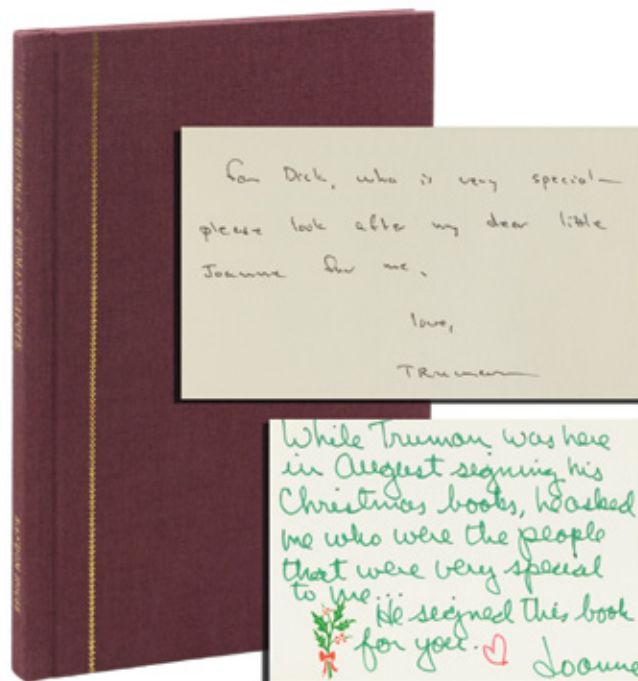 ONE CHRISTMAS · TRUMAN CAPOTE
RANDOM HOUSE
for Dick, who is very special—
please look after my dear little
Joanne for me.
love,
TRuman
While Truman was here
in August signing his
Christmas books, he asked
me who were the people
that were very special
to me...
He signed this book
for you. ♡
Joanne